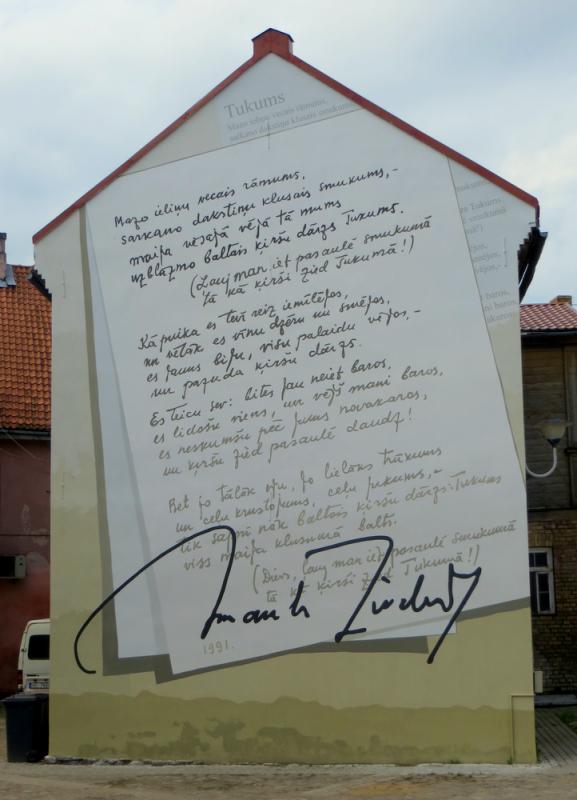 Tukums
Mazo ieliņu vecais rāmums,
sarkano dakstiņu klusais smukums
Mazo ieliņu vecais rāmums,
sarkano dakstiņu klusais smukums,-
maija vēsajā vējā tā mums
uzblāzmo baltais ķiršu dārzs Tukums.
(Ļauj man iet pasaulē smukumā
tā kā ķirši zied Tukumā!)
Kā puika es tevī reiz iemītējos,
un vēlāk es vīnu dzēru un smējos,
es jauns biju, visu palaidu vējos,-
un pazuda ķiršu dārzs.
Es teicu sev: bites jau neiet baros,
es lidošu viens, un vējš mani baros,
es neskumšu pēc jums novakaros,
un ķiršu zied pasaulē daudz!
Bet jo tālāk eju, jo lielāks trūkums
un ceļu krustojums, ceļu jukums,-
tik sapnī nāk baltais ķiršu dārzs: Tukums
viss maija klusumā balts.
(Dievs, ļauj man iet pasaulē smukumā
tā kā ķirši zied Tukumā!)
Imants Ziedonis
1991.